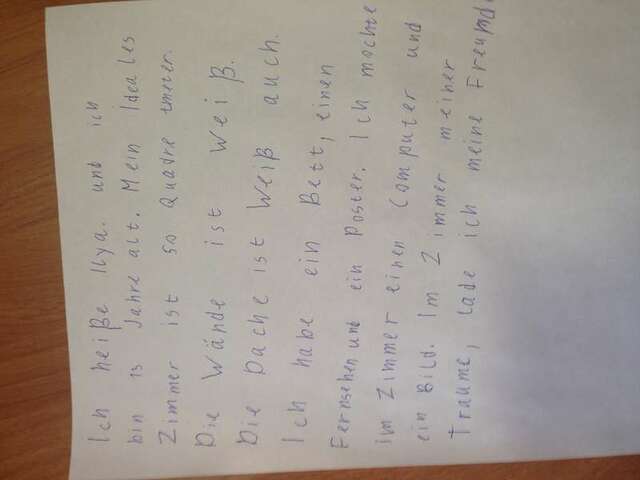 Ich heiße Ilya. und ich
bin 13 Jahre alt. Mein Ideales
Zimmer ist 50 Quadre tmeter.
Die Wände ist Weiß.
Die Dache ist Weiß auch.
Ich habe ein Bett, einen
Fernsehen und ein Poster. Ich mochte
im Zimmer einen Computer und
ein Bild. Im Zimmer meiner
Traume, lade ich meine Freund